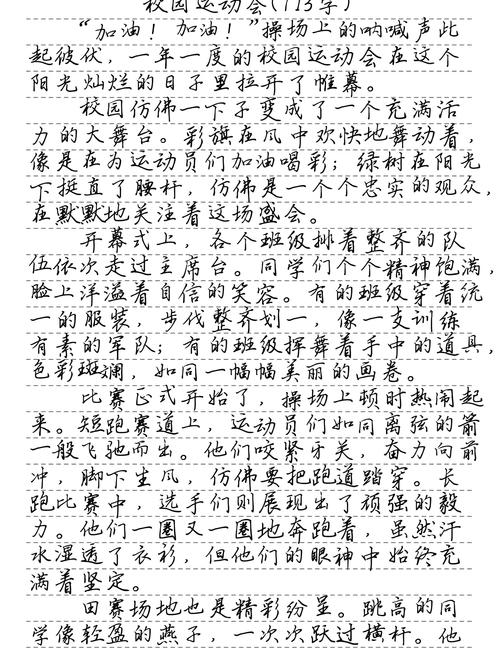 校园运动会(713字)
“加油！加油！”操场上的呐喊声此
起彼伏，一年一度的校园运动会在这个
阳光灿烂的日子里拉开了帷幕。
校园仿佛一下子变成了一个充满活
力的大舞台。彩旗在风中欢快地舞动着，
像是在为运动员们加油喝彩；绿树在阳光
下挺直了腰杆，仿佛是一个个忠实的观众，
在默默地关注着这场盛会。
开幕式上，各个班级排着整齐的队
伍依次走过主席台。同学们个个精神饱满，
脸上洋溢着自信的笑容。有的班级穿着统
一的服装，步伐整齐划一，像一支训练
有素的军队；有的班级挥舞着手中的道具，
色彩斑斓，如同一幅幅美丽的画卷。
比赛正式开始了，操场上顿时热闹起
来。短跑赛道上，运动员们如同离弦的箭
一般飞驰而出。他们咬紧牙关，奋力向前
冲，脚下生风，仿佛要把跑道踏穿。长
跑比赛中，选手们则展现出了顽强的毅
力。他们一圈又一圈地奔跑着，虽然汗
水湿透了衣衫，但他们的眼神中始终充
满着坚定。
田赛场地也是精彩纷呈。跳高的同
学像轻盈的燕子，一次次跃过横杆。他